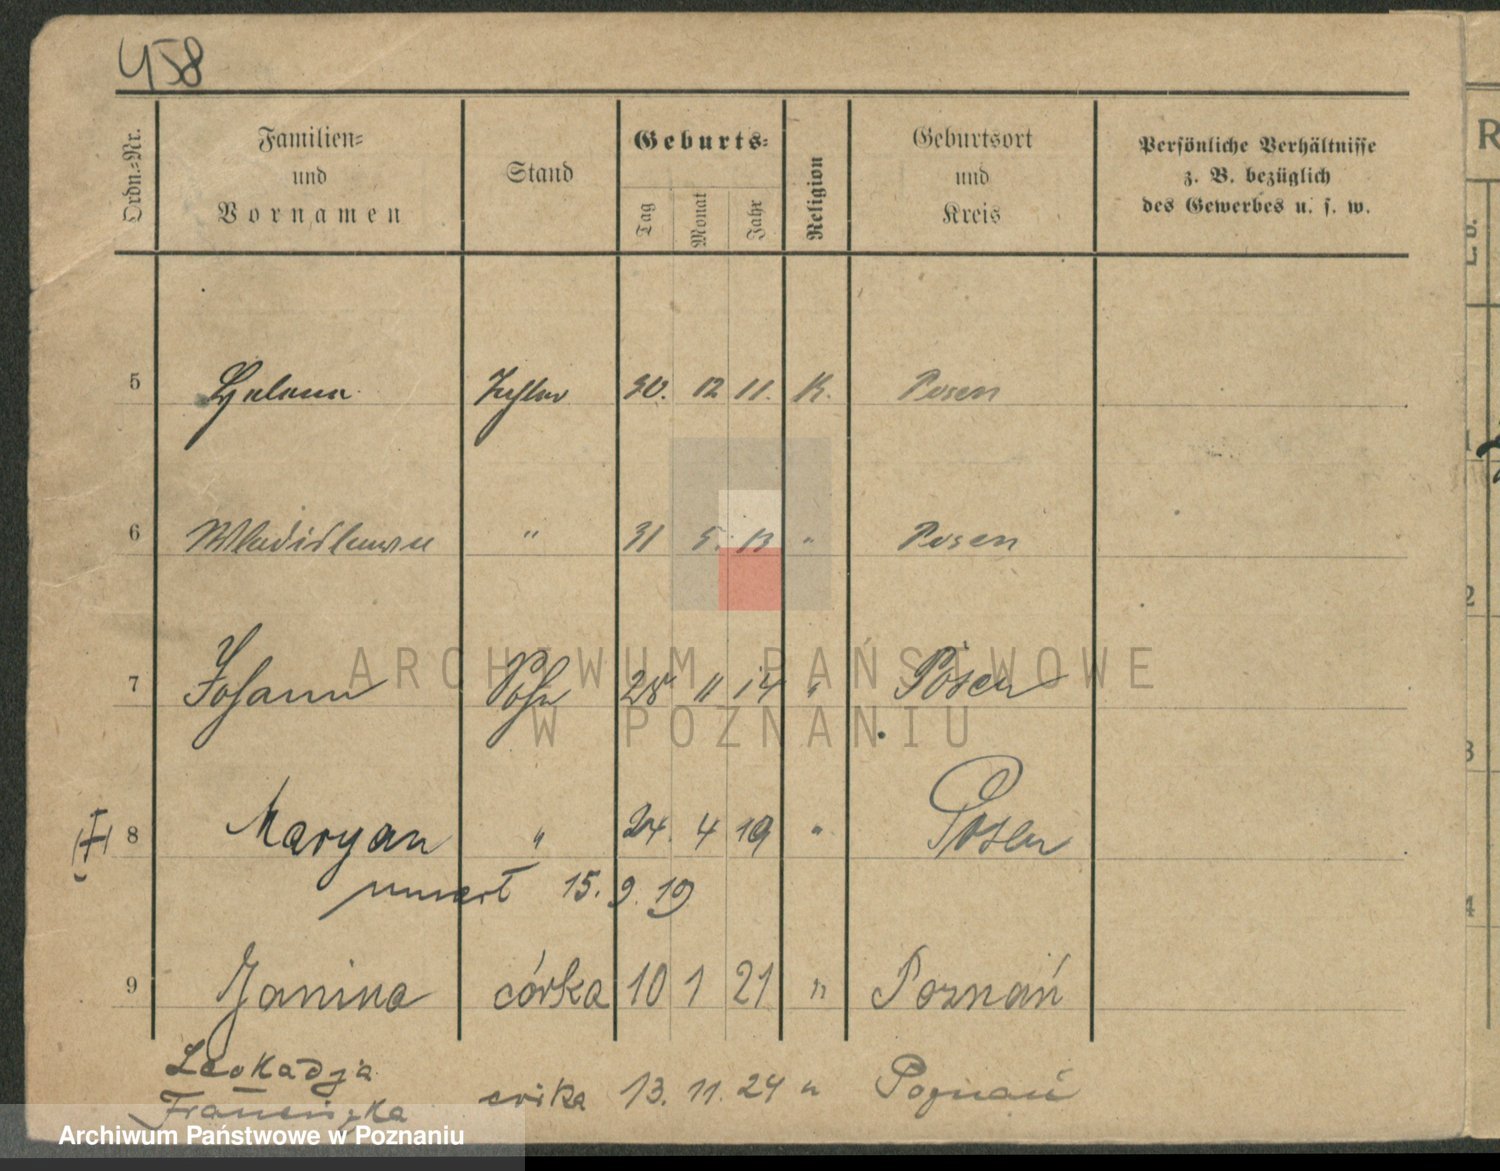 458
Ordn.=Nr. Familien= und Vornamen Stand Geburts= Tag Monat Jahr Religion Geburtsort und Kreis Persönliche Verhältnisse z. B. bezüglich des Gewerbes u. s. w.
5 Helena Tochter 30. 12 11. K. Posen
6 Wladislawa " 31 5. 13 " Posen
7 Johann Sohn 28 11 14 " Posen
8 Maryan " 24. 4 19 " Posen
umarł 15. 9. 19
9 Janina córka 10 1 21 " Poznań
Leokadja
Franciszka córka 13. 11. 24 " Poznań
ARCHIWUM PAŃSTWOWE
W POZNANIU
Archiwum Państwowe w Poznaniu
R
1
2
3
4